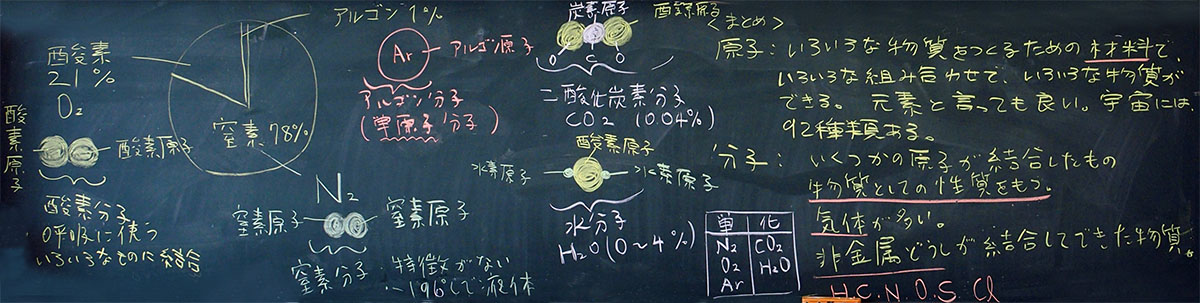 アルゴン 1%
酸素
21%
O₂
窒素 78%
酸素原子
酸素原子
酸素分子
呼吸に使う
いろいろなものに結合
N₂
窒素原子
窒素原子
窒素分子 特徴がない
-196℃で液体
Ar
アルゴン原子
アルゴン分子
(単原子分子)
炭素原子
酸素原子
O C O
二酸化炭素分子
CO₂ (0.04%)
酸素原子
水素原子
水素原子
水分子
H₂O (0~4%)
単 化
N₂ CO₂
O₂ H₂O
Ar
<まとめ>
原子:いろいろな物質をつくるための材料で、
いろいろな組み合わせで、いろいろな物質が
できる。 元素と言っても良い。宇宙には
92種類ある。
分子:いくつかの原子が結合したもの
物質としての性質をもつ。
気体が多い。
非金属どうしが結合してできた物質。
H.C.N.O.S.Cl